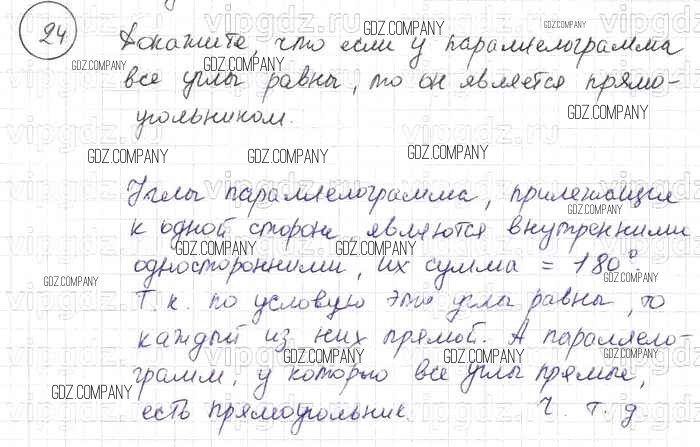 24
Докажите, что если у параллелограмма
все углы равны, то он является прямо-
угольником.
Углы параллелограмма, прилежащие
к одной стороне, являются внутренними
односторонними, их сумма = 180°.
Т. к. по условию эти углы равны, то
каждый из них прямой. А параллело-
грамм, у которого все углы прямые,
есть прямоугольник. Ч. т. д.
GDZ.COMPANY
GDZ.COMPANY
GDZ.COMPANY
GDZ.COMPANY
GDZ.COMPANY
GDZ.COMPANY
GDZ.COMPANY
GDZ.COMPANY
GDZ.COMPANY
GDZ.COMPANY
GDZ.COMPANY
GDZ.COMPANY
GDZ.COMPANY
GDZ.COMPANY
GDZ.COMPANY
GDZ.COMPANY
vipgdz.ru